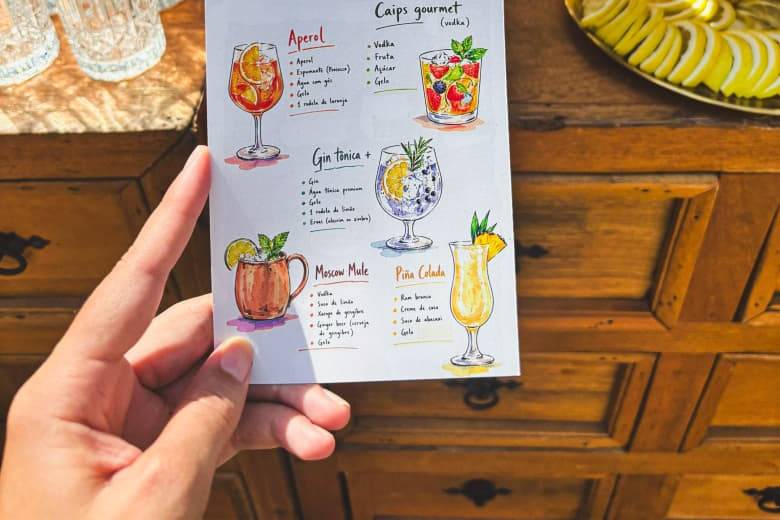 Aperol
Aperol
Espumante (Prosecco)
Água com gás
Gelo
1 rodela de laranja
Caips gourmet
(vodka)
Vodka
Fruta
Açúcar
Gelo
Gin tônica +
Gin
Água tônica premium
Gelo
1 rodela de limão
Ervas (alecrim ou zimbro)
Moscow Mule
Vodka
Suco de limão
Xarope de gengibre
Ginger beer (cerveja
de gengibre)
Gelo
Piña Colada
Rum branco
Creme de coco
Suco de abacaxi
Gelo